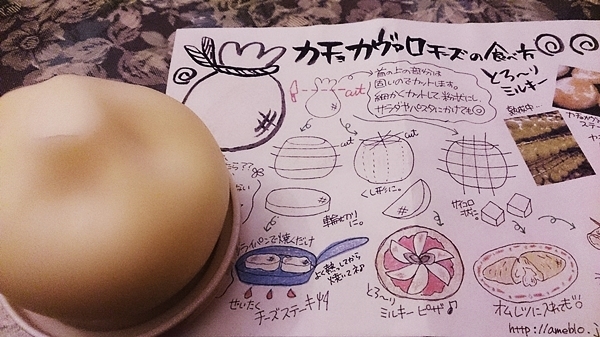 カチョカヴァロチーズの食べ方
とろ〜り
ミルキー
首の上の部分は
固いのでカットします。
細かくカットして粉状にし
サラダやパスタにかけても◎
cut
cut
cut
くし形に。
輪切りに。
サイコロ
状に
フライパンで焼くだけ
よく熱してから
焼いてネ♪
ぜいたく
チーズステーキ
とろ〜り
ミルキーピザ♪
オムレツに入れても◎
http://ameblo.j